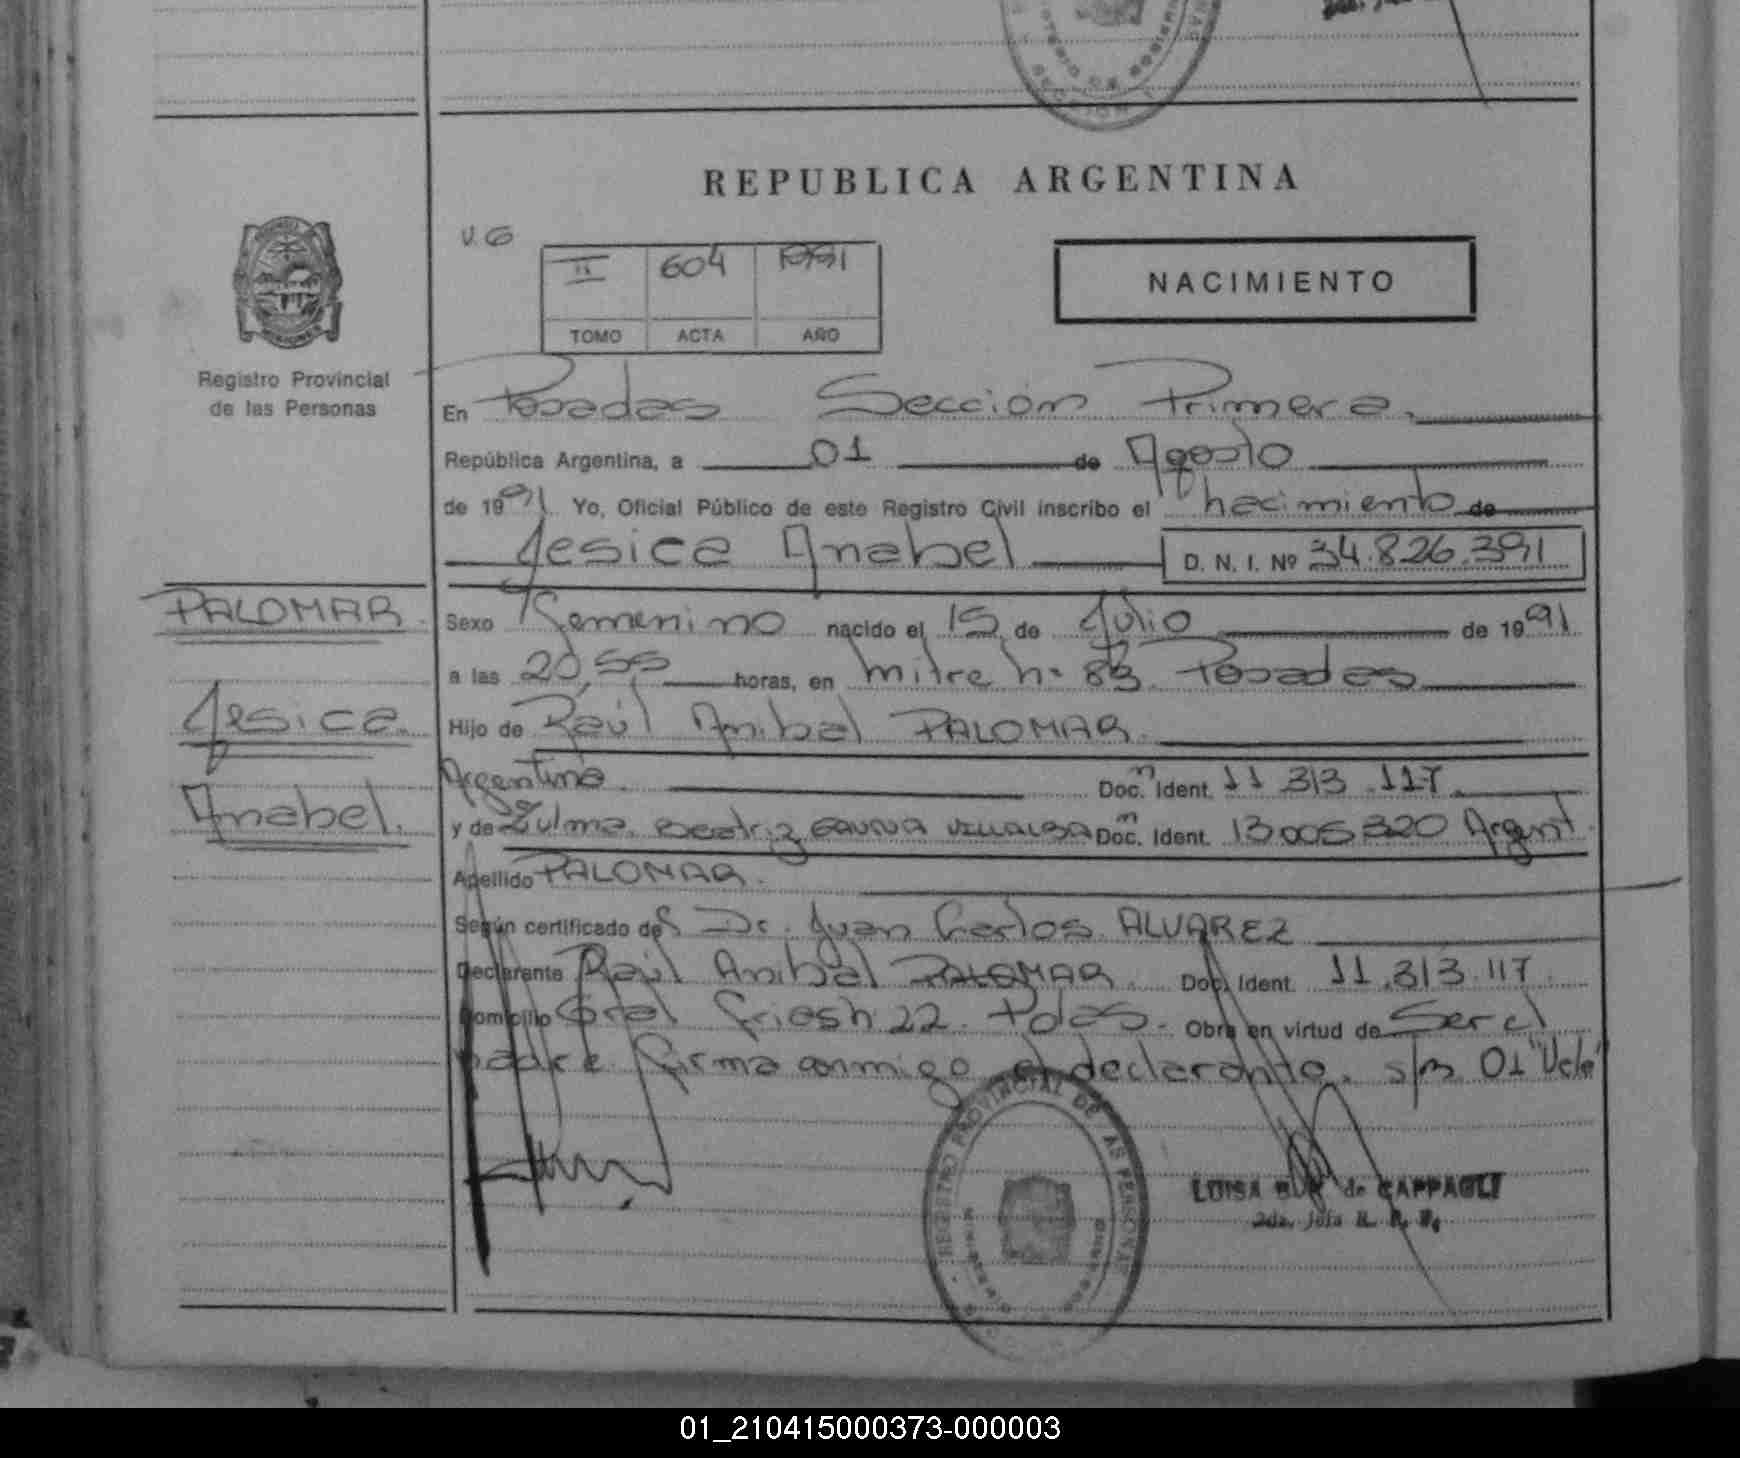 REPUBLICA ARGENTINA
V.G
II 604 1991
TOMO ACTA AÑO
NACIMIENTO
Registro Provincial
de las Personas
En Posadas Sección Primera.
República Argentina, a 01 de Agosto
de 1991 Yo, Oficial Público de este Registro Civil inscribo el nacimiento de
Jesica Anabel D. N. I. Nº 34.826.391
PALOMAR
Jesica
Anabel.
Sexo Femenino nacido el 15 de Julio de 1991
a las 20,55 horas, en Mitre nº 83 Posadas
Hijo de Raúl Anibal PALOMAR
Argentina. Doc. Ident. 11 313.117
y de Zulma Beatriz VILLALBA Doc. Ident. 13005320 Argent
Apellido PALOMAR.
Según certificado de Dr. Juan Carlos ALVAREZ
Declarante Raúl Anibal PALOMAR Doc. Ident. 11.313.117
Domicilio Gral 22. Pdas. Obra en virtud de Ser el
padre firma conmigo el declarante. s/m 01 "Vale"
REGISTRO PROVINCIAL DE LAS PERSONAS
LUISA de CAPPAGLI
2da. Jefa R. P. P.
01_210415000373-000003